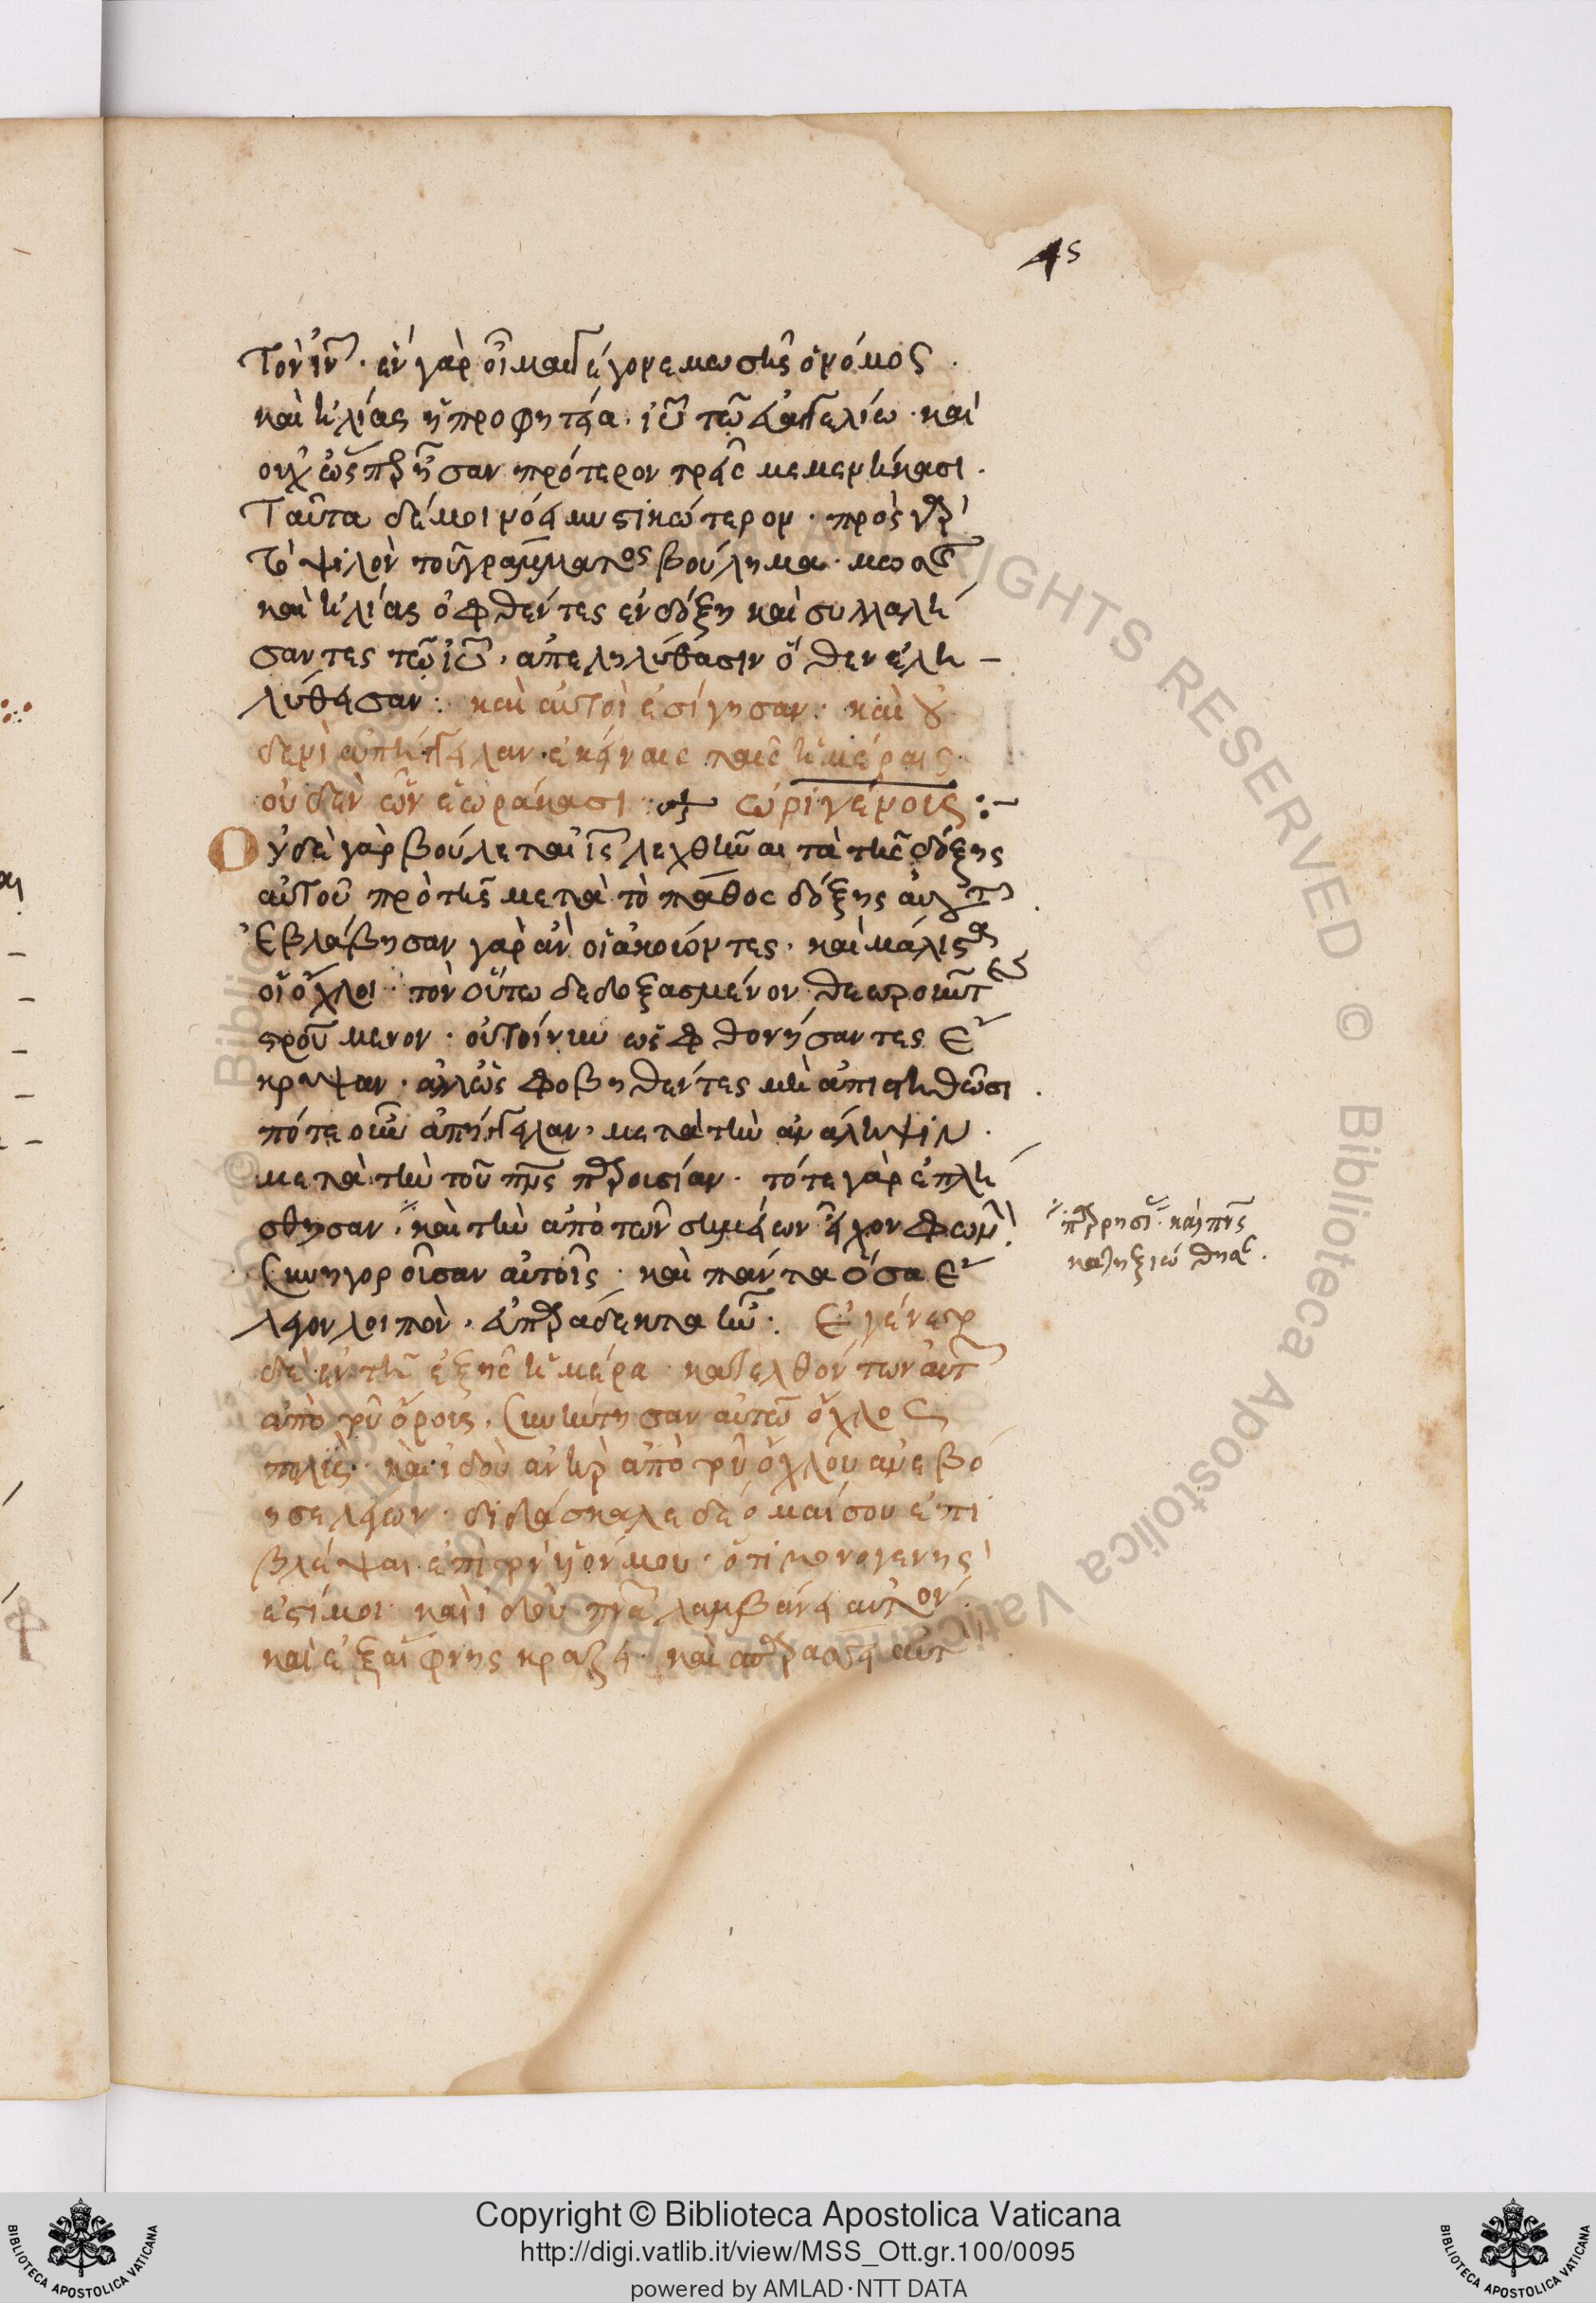 45
Τὸν ἰν̅. ἓν γὰρ οἶμαι γέγονε μωσῆς ὁ νόμος.
καὶ ἠλίας ἡ προφητεία. ἰυ̅ τῶ εὐαγγελίω. καὶ
οὐχ ὡς πρ ἦσαν πρότερον τρεῖς μεμενήκασι.
Ταῦτα δέ μοι νόει μυστικώτερον. πρὸς γὰρ
τὸ ψιλὸν τοῦ γράμματος βούλημα. μωσῆς
καὶ ἠλίας ὀφθέντες ἐν δόξη καὶ συλλαλή
σαντες τῶ ἰυ̅, ἀπεληλύθασιν ὅθεν ἐλη –
λύθεισαν: καὶ αὐτοὶ ἐσίγησαν: καὶ οὐ
δενὶ ἀπήγγειλαν ἐκείναις ταῖς ἡμέραις
οὐδὲν ὧν ἑωράκασι ὠριγένους :–
Οὐδὲ γὰρ βούλεται ἰς̅ λεχθῆναι τὰ τῆς δόξης
αὐτοῦ πρὸ τῆς μετὰ τὸ πάθος δόξης αὐτοῦ.
Ἐβλάβησαν γὰρ ἂν οἱ ἀκούοντες. καὶ μάλιστα
οἱ ὄχλοι. τὸν οὕτω δεδοξασμένον θεωροῦντες
σρούμενον. οὐ τοίνυν ὡς φθονήσαντες ἔ
κρυψαν. ἀλλ' ὡς φοβηθέντες μὴ ἀπιστηθῶσι.
πότε οὖν ἀπήγγειλαν. μετὰ τὴν ἀνάληψιν.
μετὰ τὴν τοῦ πνς̅ παρουσίαν. τότε γὰρ ἐπλή
σθησαν. καὶ τὴν ἀπὸ τῶν σημείων εἶχον φωνὴν
συνηγοροῦσαν αὐτοῖς. καὶ πάντα ὅσα ἔ
λεγον λοιπὸν. εὐπαράδεκτα ἦν. Ἐγένετο
δὲ ἐν τῆ ἑξῆς ἡμέρα. κατελθόντων αὐτῶν
ἀπὸ τοῦ ὄρους. συνήντησαν αὐτῶ ὄχλος
πολύς. καὶ ἰδοὺ ἀνὴρ ἀπὸ τοῦ ὄχλου ἀνεβό
ησε λέγων. διδάσκαλε δέομαί σου ἐπι
βλέψαι ἐπὶ τὸν ὑιόν μου. ὅτι μονογενής
ἐστί μοι. καὶ ἰδοὺ πνα̅ λαμβάνει αὐτόν.
καὶ ἐξαίφνης κράζει. καὶ σπαράσσει αὐτ
παρρησί. καὶ πνς̅
κατηξιώθησ.
Copyright © Biblioteca Apostolica Vaticana
http://digi.vatlib.it/view/MSS_Ott.gr.100/0095
powered by AMLAD·NTT DATA